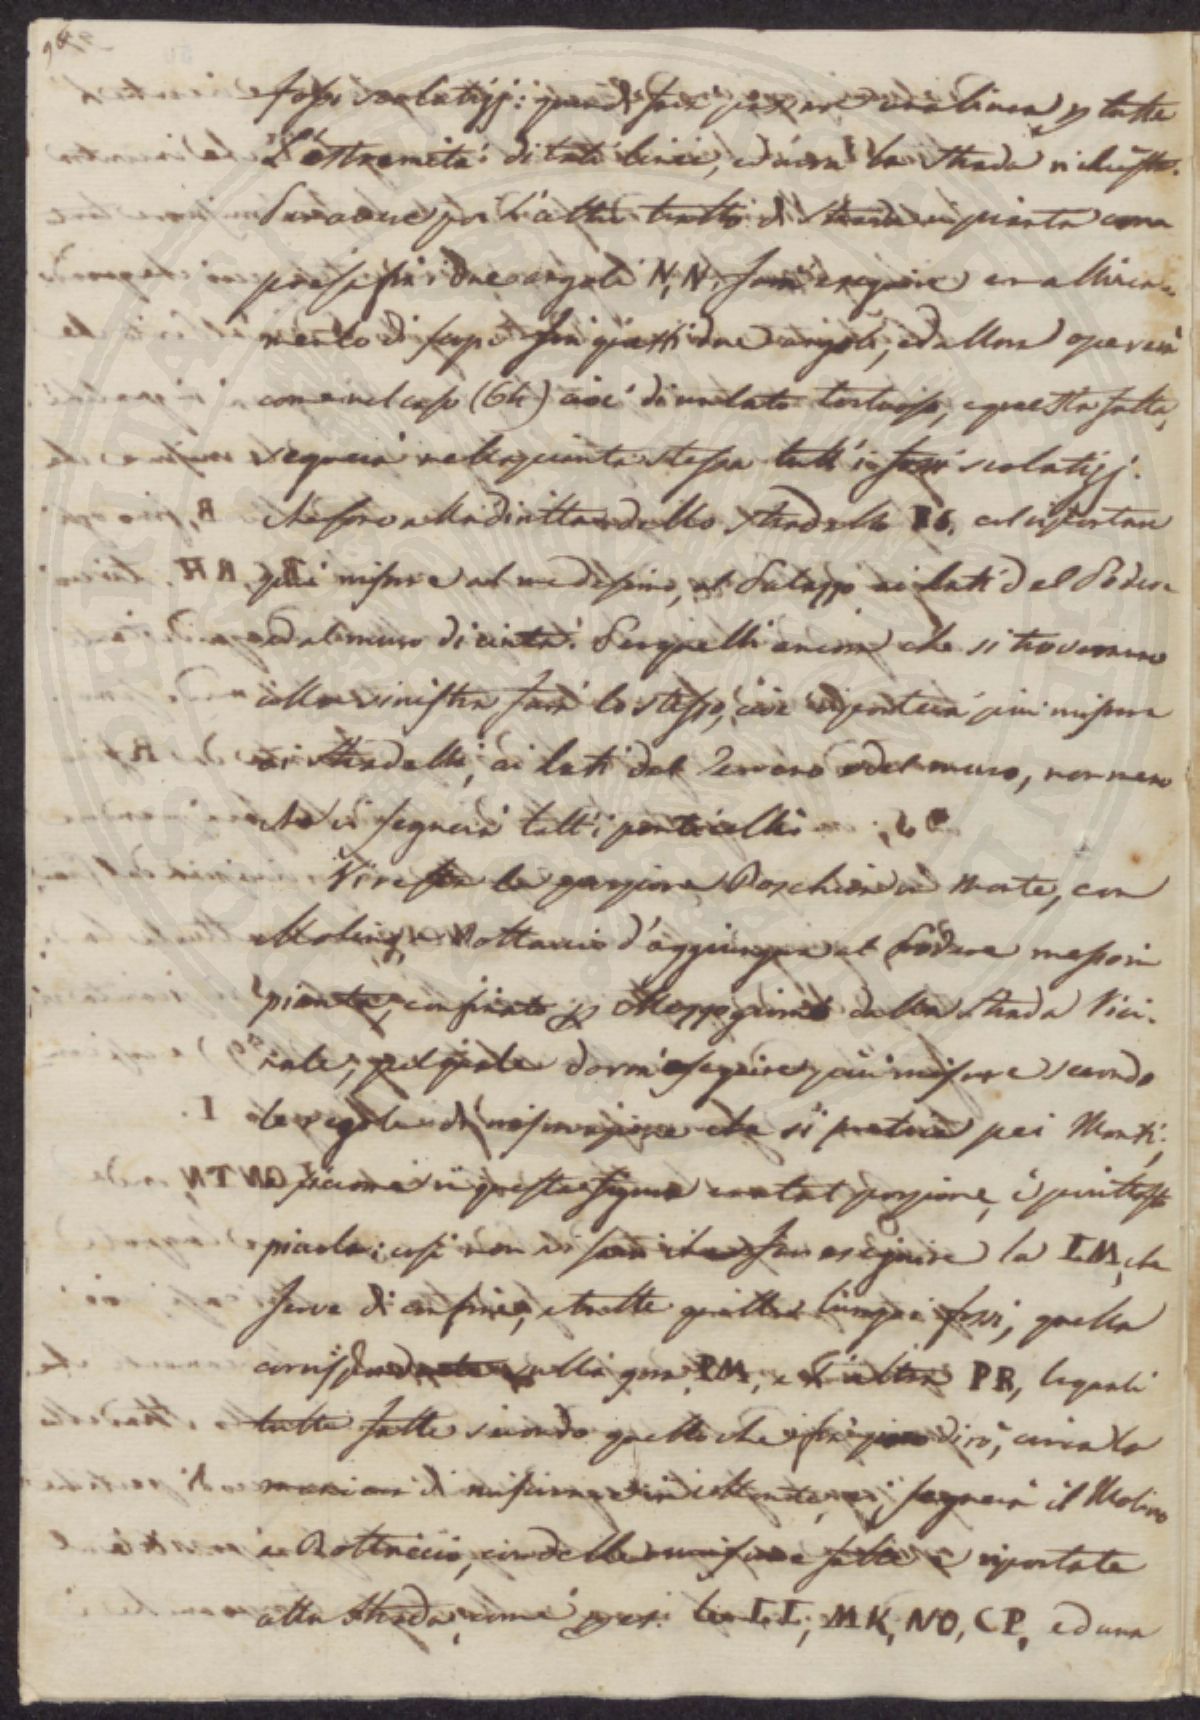 fossi scolatizj: quindi farà passare una linea p tutte
L'estremità di tali linee, ed avrà la strada richiesta.
Per avere poi l'altro tratto di strada in pianta com-
presa fra i due angoli N, N. farà eseguire un allinea-
mento di scopi fra questi due angoli, ed allora opererà
come nel caso (64) cioè di un lato tortuoso, e questa fatta,
segnerà nella pianta stessa tutt'i fossi scolatizj.
che sono alla diritta dello stradello RS, col riportare
più misure al medesimo, al Palazzo ai lati del Podere
ed al muro di cinta. Per quelli ancora che si trovano
alla sinistra farà lo stesso, cioè riporterà più misure
ai stradelli, ai lati del Terreno e del muro, non meno
che vi segnerà tutt'i ponticelli
Vi resta la porzione Boschiva in Monte, con
Molino, e Bottaccio d'aggiungere al Podere messo in
pianta, confinato p Mezzogiorno dalla strada Vici-
nale, pel quale dovrà eseguire più misure secondo
le regole di misurazione che si pratica pei Monti;
e siccome in questa figura una tal porzione, è piuttosto
piccola; così non vi sarà che far eseguire la IM, che
serve di confine, e tratte quattro lungo i fossi, quella
corrispondente sulla PM, e l'altra PR, le quali
tutte fatte secondo quello che dirò, circa la
maniera di misurare, segnerà il Molino
e Bottaccio, con delle misure fatte e riportate
alla strada, come p es: le LI, MK, NO, CP, ed una